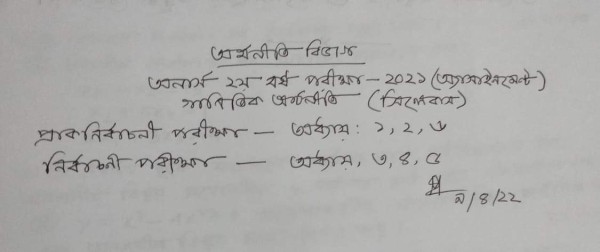 অর্থনীতি বিভাগ
অনার্স ২য় বর্ষ পরীক্ষা - ২০২১ (অ্যাসাইনমেন্ট)
গাণিতিক অর্থনীতি (সিলেবাস)
প্রাকনির্বাচনী পরীক্ষা — অধ্যায় : ১, ২, ৬
নির্বাচনী পরীক্ষা — অধ্যায়, ৩, ৪, ৫
৯/৪/২২